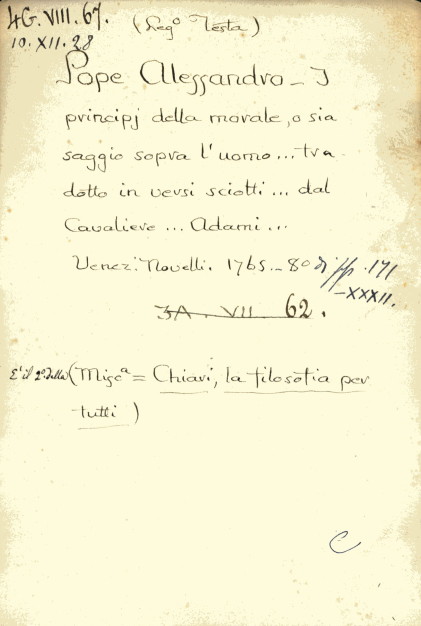 4G. VIII. 67.
10. XII. 28
(Leg° Testa)
Pope Alessandro _ I
principj della morale, o sia
saggio sopra l'uomo ... tra
dotto in versi sciolti ... dal
Cavaliere ... Adami ...
Venezi. Novelli. 1765. _ 8° pp. 171
-XXXII.
3A. VII 62.
E' il 2° della (Misc a = Chiari, la filosofia per
tutti)
C